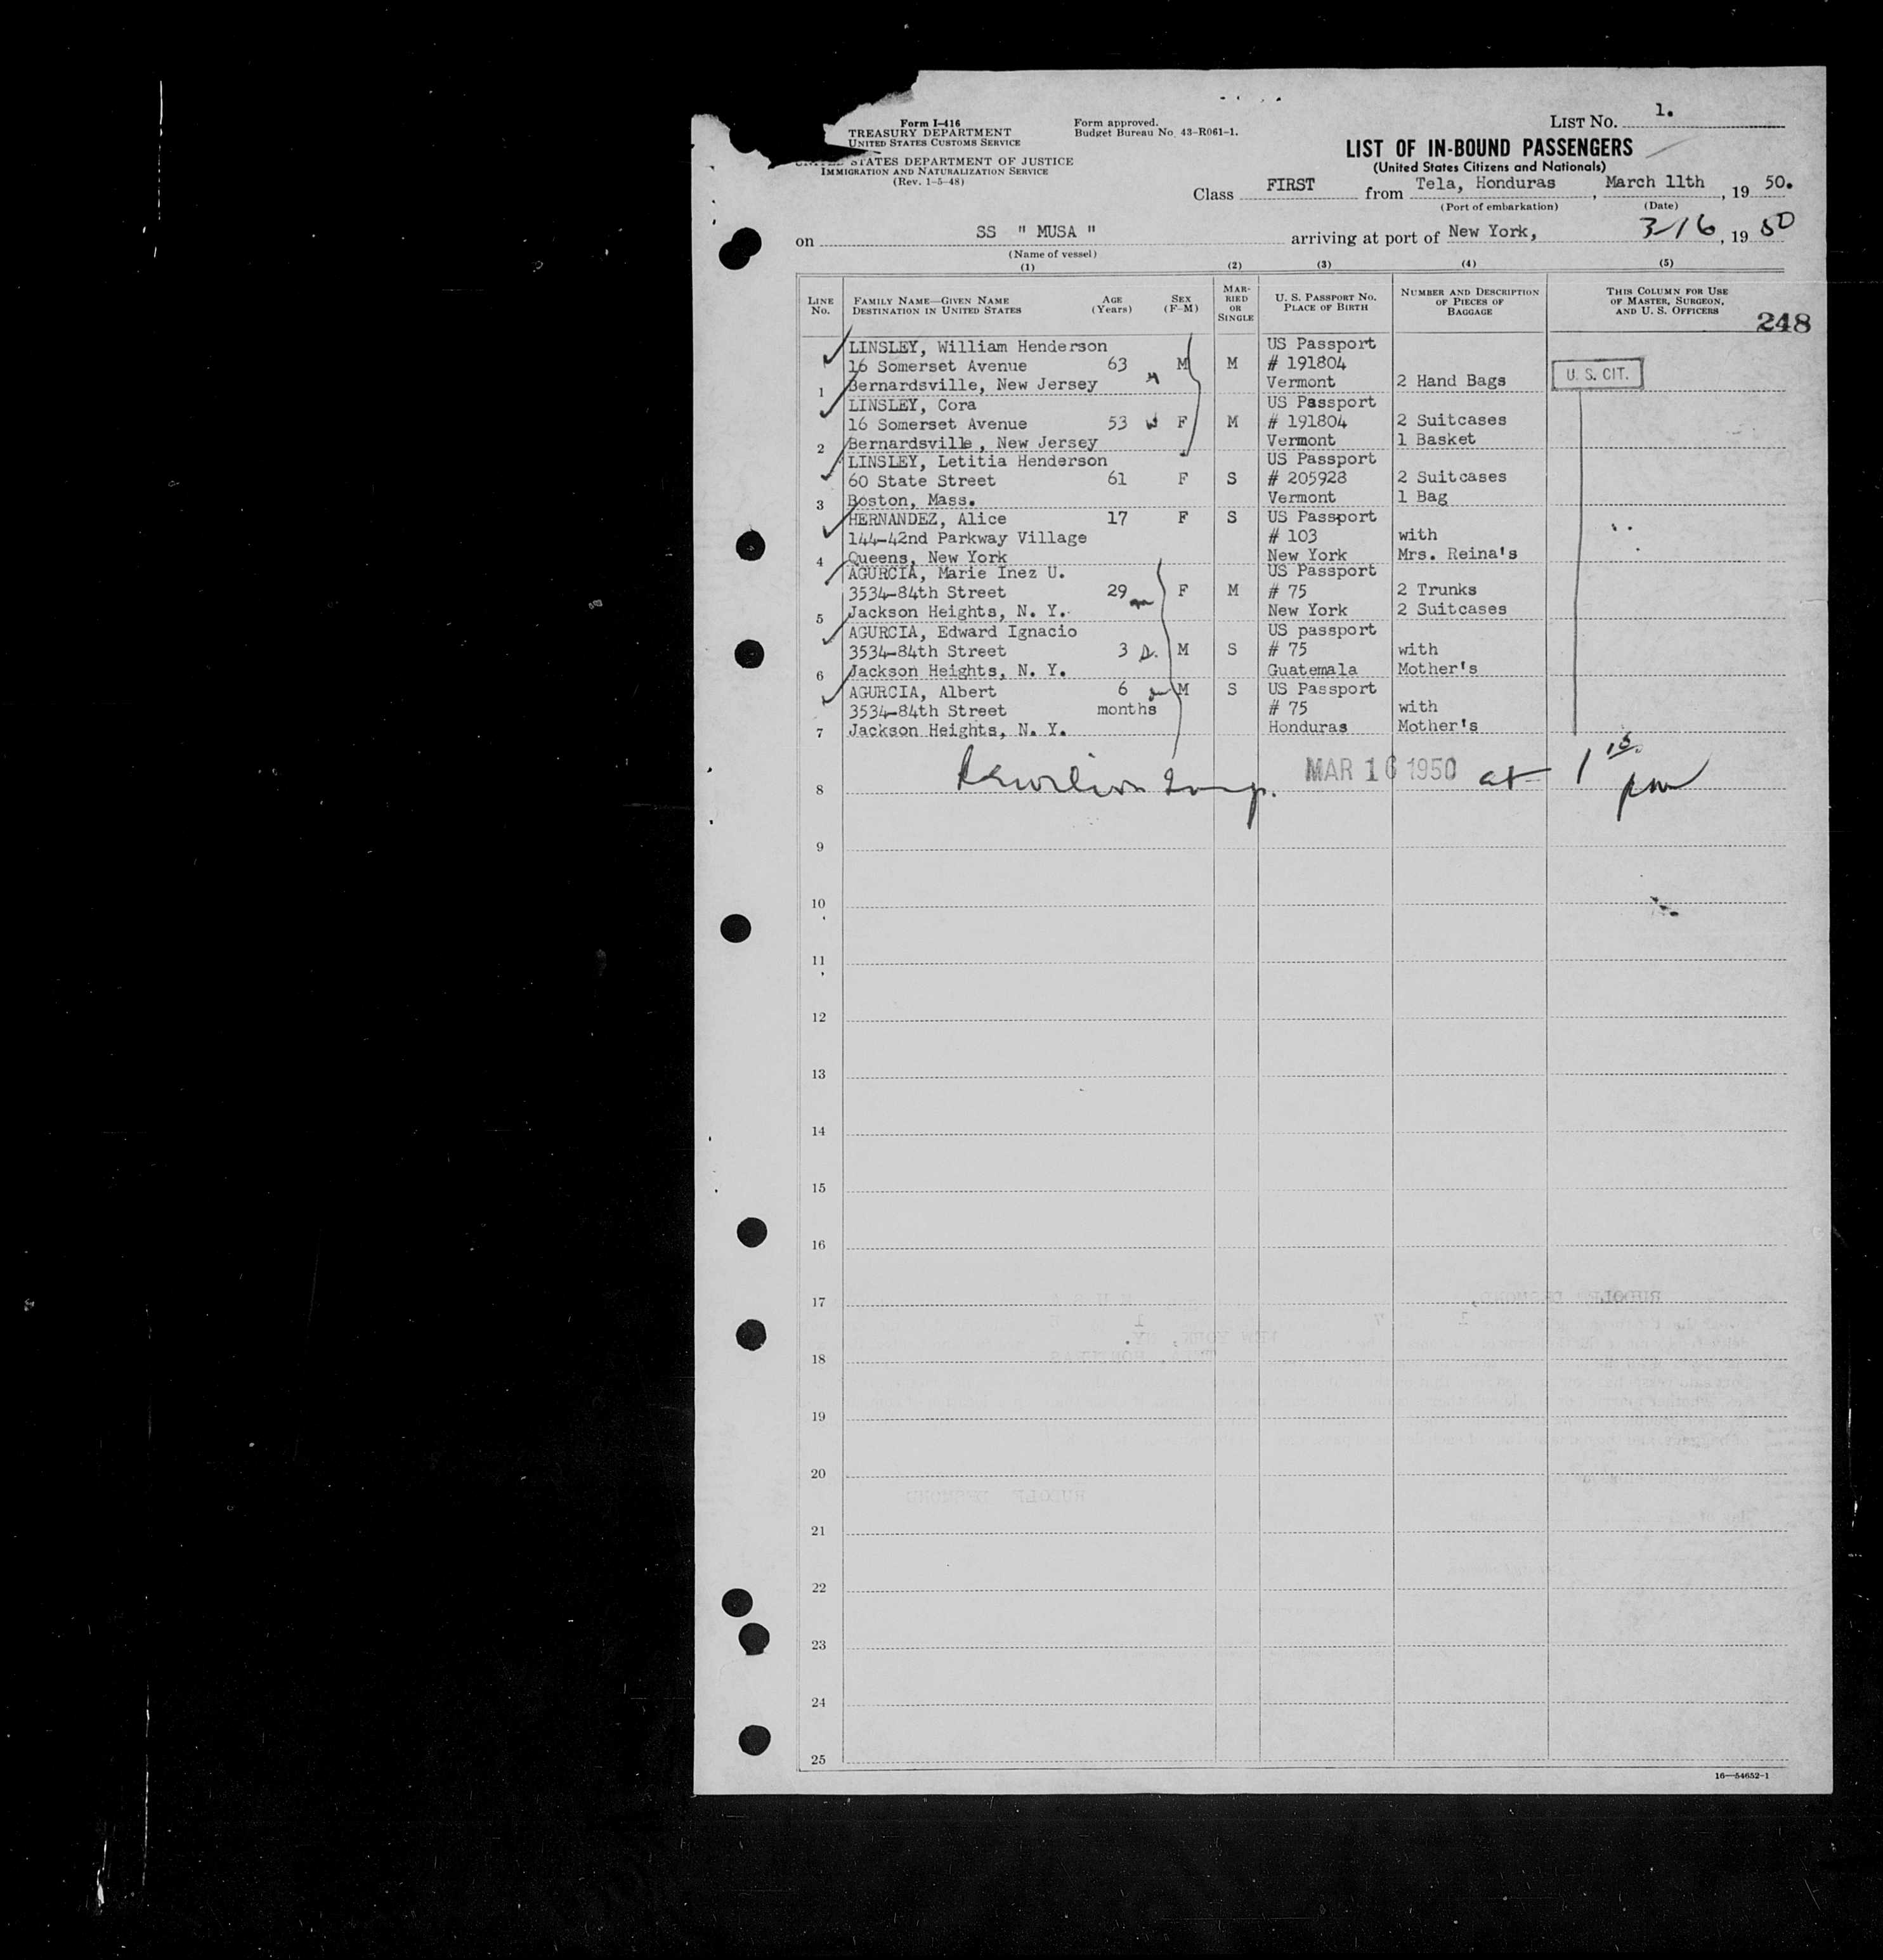 Form I-416
TREASURY DEPARTMENT
UNITED STATES CUSTOMS SERVICE
STATES DEPARTMENT OF JUSTICE
IMMIGRATION AND NATURALIZATION SERVICE
(Rev. 1-5-48)
Form approved.
Budget Bureau No. 43-R061-1.
LIST NO. 1.
LIST OF IN-BOUND PASSENGERS
(United States Citizens and Nationals)
Class FIRST from Tela, Honduras, March 11th, 19 50.
(Port of embarkation) (Date)
on SS " MUSA " arriving at port of New York, 3-16, 19 50
(Name of vessel)
(1) (2) (3) (4) (5)
LINE NO.
FAMILY NAME—GIVEN NAME
DESTINATION IN UNITED STATES
AGE (Years)
SEX (F-M)
MARRIED OR SINGLE
U. S. PASSPORT NO.
PLACE OF BIRTH
NUMBER AND DESCRIPTION OF PIECES OF BAGGAGE
THIS COLUMN FOR USE OF MASTER, SURGEON, AND U. S. OFFICERS
248
LINSLEY, William Henderson US Passport
16 Somerset Avenue 63 M M # 191804
1 Bernardsville, New Jersey Vermont 2 Hand Bags U. S. CIT.
LINSLEY, Cora US Passport
16 Somerset Avenue 53 F M # 191804 2 Suitcases
2 Bernardsville, New Jersey Vermont 1 Basket
LINSLEY, Letitia Henderson US Passport
60 State Street 61 F S # 205928 2 Suitcases
3 Boston, Mass. Vermont 1 Bag
HERNANDEZ, Alice 17 F S US Passport
144-42nd Parkway Village # 103 with
4 Queens, New York New York Mrs. Reina's
AGURCIA, Marie Inez U. US Passport
3534-84th Street 29 F M # 75 2 Trunks
5 Jackson Heights, N. Y. New York 2 Suitcases
AGURCIA, Edward Ignacio US passport
3534-84th Street 3 M S # 75 with
6 Jackson Heights, N. Y. Guatemala Mother's
AGURCIA, Albert 6 M S US Passport
3534-84th Street months # 75 with
7 Jackson Heights, N. Y. Honduras Mother's
8 MAR 16 1950 at 1 15 pm
9
10
11
12
13
14
15
16
17
18
19
20
21
22
23
24
25
16—54652-1